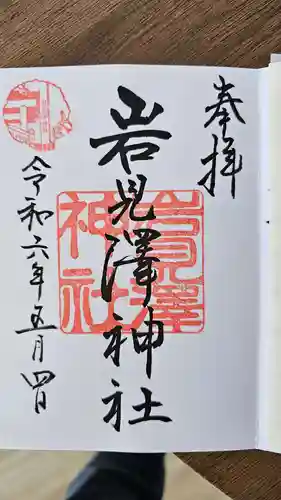 奉拝
岩見澤神社
岩見澤
神社
令和六年五月四日